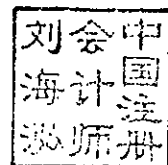 中国注册
会计师
刘海